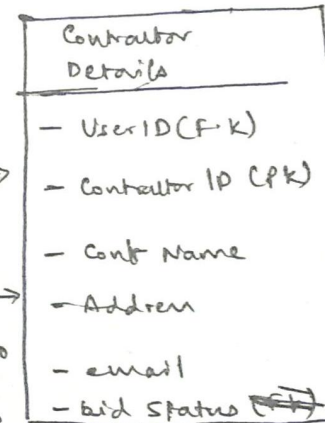 Contractor
Details
- User ID (F.K)
- Contractor ID (PK)
- Cont Name
- Address
- email
- bid status (FK)